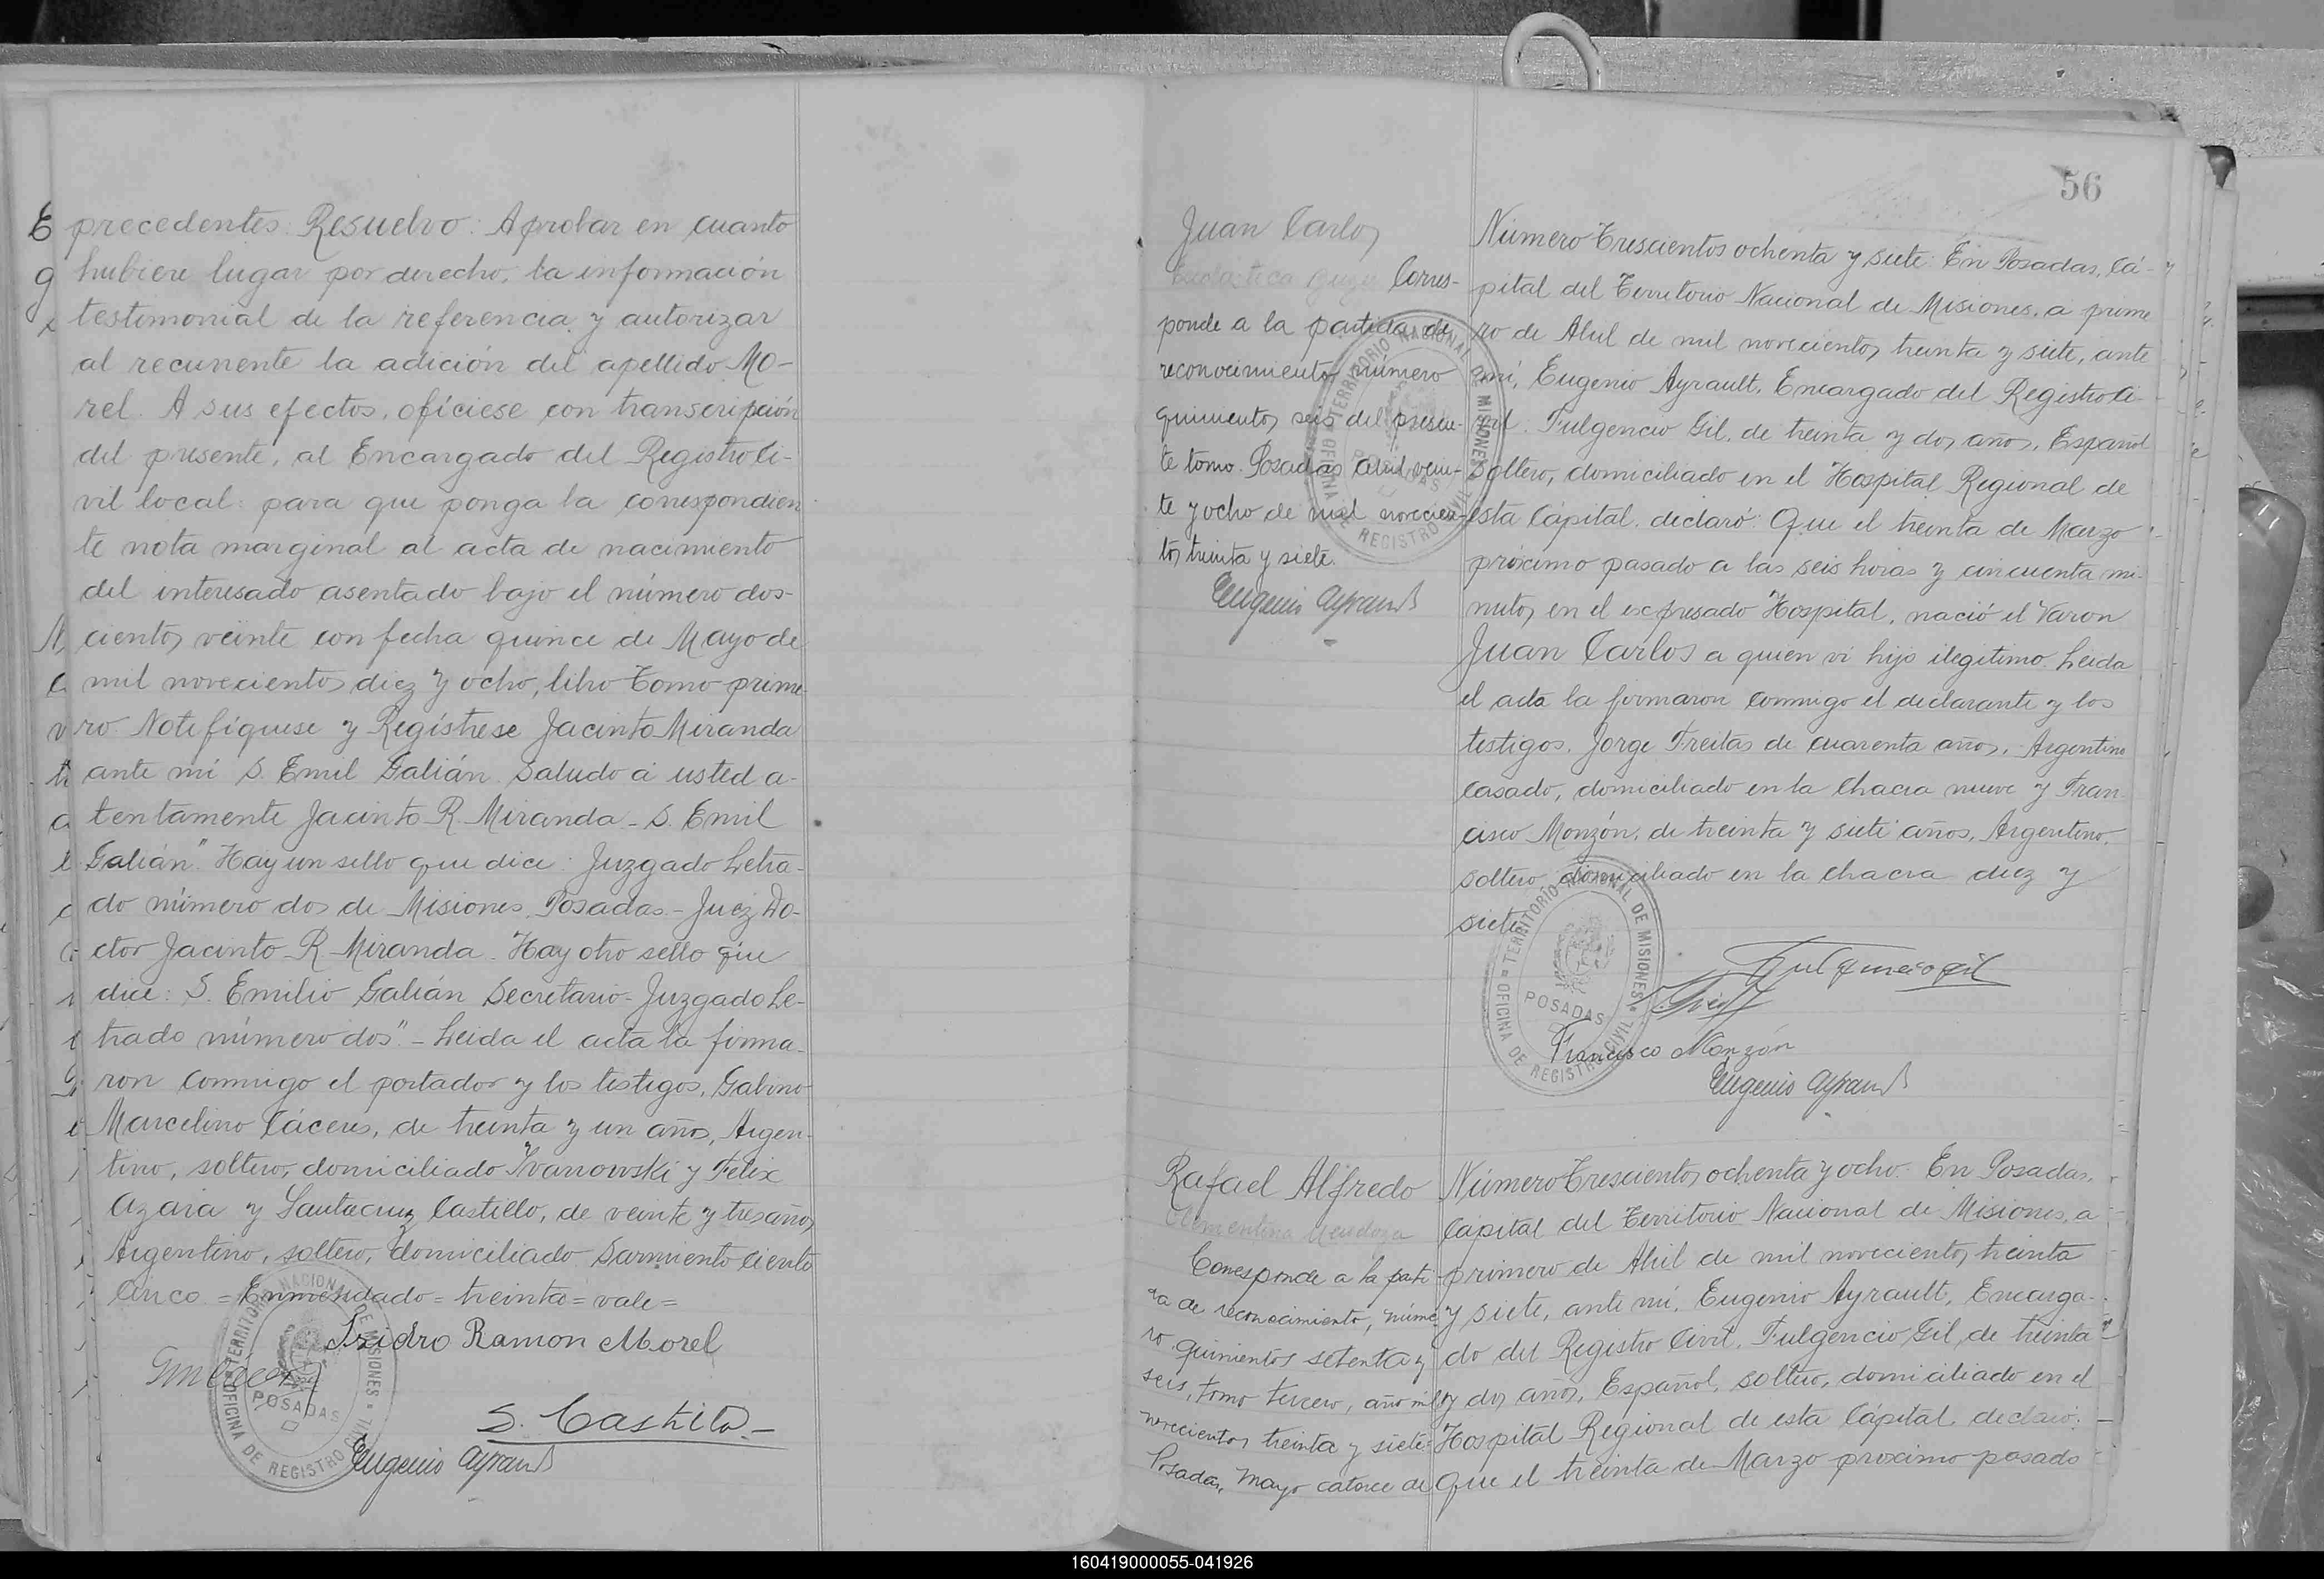 precedentes: Resuelvo: Aprobar en cuanto
hubiere lugar por derecho, la información
testimonial de la referencia y autorizar
al recurrente la adición del apellido Mo-
rel. A sus efectos, ofíciese con transcripción
del presente, al Encargado del Registro Ci-
vil local: para que ponga la correspondien
te nota marginal al acta de nacimiento
del interesado asentado bajo el número dos-
cientos veinte con fecha quince de Mayo de
mil novecientos diez y ocho, libro Tomo prime
ro. Notefíquese y Regístrese Jacinto Miranda
ante mí S. Emil Galián. Saludo a usted a-
tentamente Jacinto R. Miranda - S. Emil
Galián" Hay un sello que dice: Juzgado Letra-
do número dos de Misiones. Posadas - Juez Do-
ctor Jacinto R. Miranda. Hay otro sello que
dice: S. Emilio Galián Secretario - Juzgado Le-
trado número dos" - Leida el acta la firma-
ron conmigo el portador y los testigos, Gabino
Marcelino Cáceres, de treinta y un años, Argen-
tino, soltero, domiciliado Ivanowski y Felix
Azara y Santacruz Castillo, de veinte y tres años,
Argentino, soltero, domiciliado Sarmiento ciento
cinco = Enmendado = treinta = vale =
Isidro Ramon Morel
S. Castillo.-
Eugenio Ayrault
TERRITORIO NACIONAL DE MISIONES
POSADAS
OFICINA DE REGISTRO CIVIL
56
Juan Carlos
Corres-
ponde a la partida de
reconocimiento número
quinientos seis del presen-
te tomo. Posadas abril vein-
te y ocho de mil novecien-
tos treinta y siete.
Eugenio Ayrault
TERRITORIO NACIONAL DE MISIONES
POSADAS
OFICINA DE REGISTRO CIVIL
Número Trescientos ochenta y siete: En Posadas, Cá-
pital del Territorio Nacional de Misiones, a prime
ro de Abril de mil novecientos treinta y siete, ante
mí, Eugenio Ayrault, Encargado del Registro Ci-
vil: Fulgencio Gil, de treinta y dos años, Español
soltero, domiciliado en el Hospital Regional de
esta Cápital, declaró: Que el treinta de Marzo
próximo pasado a las seis horas y cincuenta mi-
nutos, en el expresado Hospital, nació el Varon
Juan Carlos a quien vi hijo ilegitimo. Leida
el acta la firmaron conmigo el declarante y los
testigos, Jorge Freitas de cuarenta años, Argentino
casado, domiciliado en la chacra nueve y Fran
cisco Monzón, de treinta y siete años, Argentino,
soltero domiciliado en la chacra diez y
siete
Fulgencio Gil
Francisco Monzón
Eugenio Ayrault
TERRITORIO NACIONAL DE MISIONES
POSADAS
OFICINA DE REGISTRO CIVIL
Rafael Alfredo
Clementina Mendoza
Corresponde a la parti
da de reconocimiento, núme
ro quinientos setenta y
seis, tomo tercero, año mil
novecientos treinta y siete.
Posadas, Mayo catorce de
Número Trescientos ochenta y ocho: En Posadas,
Cápital del Territorio Nacional de Misiones, a
primero de Abril de mil novecientos treinta
y siete, ante mí, Eugenio Ayrault, Encarga-
do del Registro Civil, Fulgencio Gil, de treinta
y dos años, Español, soltero, domiciliado en el
Hospital Regional de esta Cápital, declaró:
Que el treinta de Marzo proximo pasado
160419000055-041926